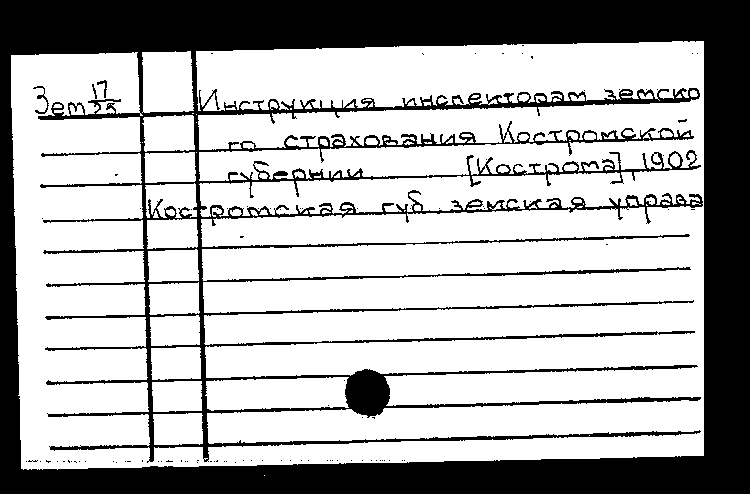 Зем 17/25 Инструкция инспекторам земско
го страхования Костромской
губернии. [Кострома], 1902
Костромская губ. земская управа